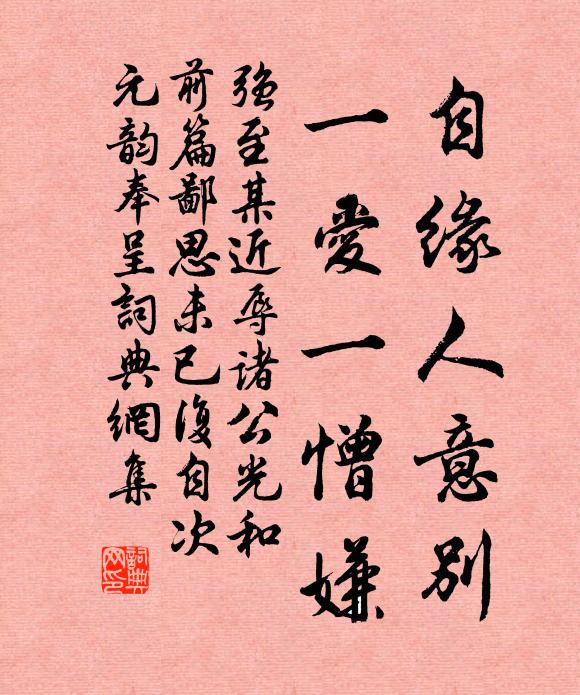 自缘人意别
一愛一憎嫌
强至某近辱诸公光和
前篇鄙思未已復自次
元韵奉呈詞典網集
詞典网印